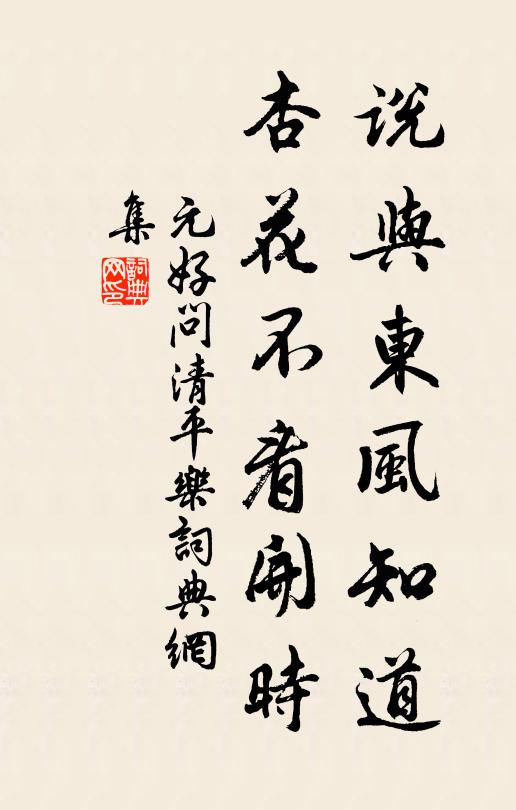 說與東風知道
杏花不看開時
元好問清平樂詞典網
集
詞典
网印